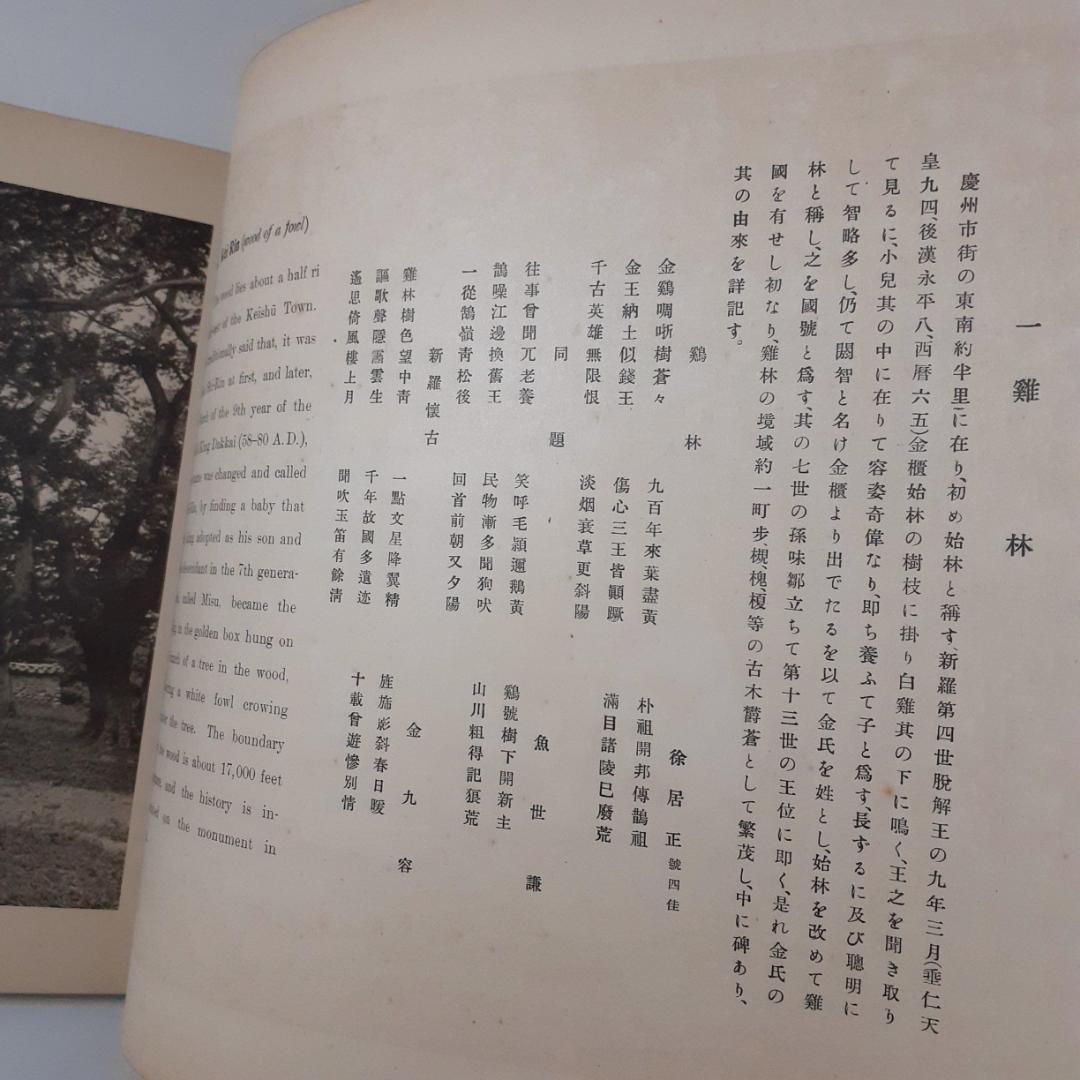 一 雞 林
慶州市街の東南約半里に在り、初め始林と稱す、新羅第四世脫解王の九年三月(垂仁天
皇九四、後漢永平八、西曆六五)金櫃始林の樹枝に掛り白雞其の下に鳴く、王之を聞き取り
て見るに、小兒其の中に在りて容姿奇偉なり、卽ち養ふて子と爲す、長ずるに及び聰明に
して智略多し、仍て閼智と名け金櫃より出でたるを以て金氏を姓とし、始林を改めて雞
林と稱し、之を國號と爲す、其の七世の孫味鄒立ちて第十三世の王位に卽く、是れ金氏の
國を有せし初なり、雞林の境域約一町步、槻、槐、榎等の古木欝蒼として繁茂し、中に碑あり、
其の由來を詳記す。
鷄林 徐居正 號四佳
金鷄啁哳樹蒼々 九百年來葉盡黃 朴祖開邦傳鵲祖
金王納土似錢王 傷心三王皆顚蹶 滿目諸陵已廢荒
千古英雄無限恨 淡烟衰草更斜陽
同題 魚世謙
往事曾聞兀老養 笑呼毛穎邇鵝黃 鷄號樹下開新主
鵲噪江邊換舊王 民物漸多聞狗吠 山川粗得記狼荒
一從鵠嶺靑松後 回首前朝又夕陽
新羅懷古 金九容
雞林樹色望中靑 一點文星降翼精 旌旆影斜春日暖
謳歌聲隱靄雲生 千年故國多遺迹 十載曾遊慘別情
遙思倚風樓上月 聞吹玉笛有餘淸
Rin (wood of a fowl)
wood lies about a half ri
of the Keishū Town.
said that, it was
Rin at first, and later,
of the 9th year of the
King Dakkai (58–80 A.D.),
was changed and called
by finding a baby that
adopted as his son and
in the 7th genera-
called Misu, became the
in the golden box hung on
of a tree in the wood,
a white fowl crowing
the tree. The boundary
wood is about 17,000 feet
and the history is in-
on the monument in